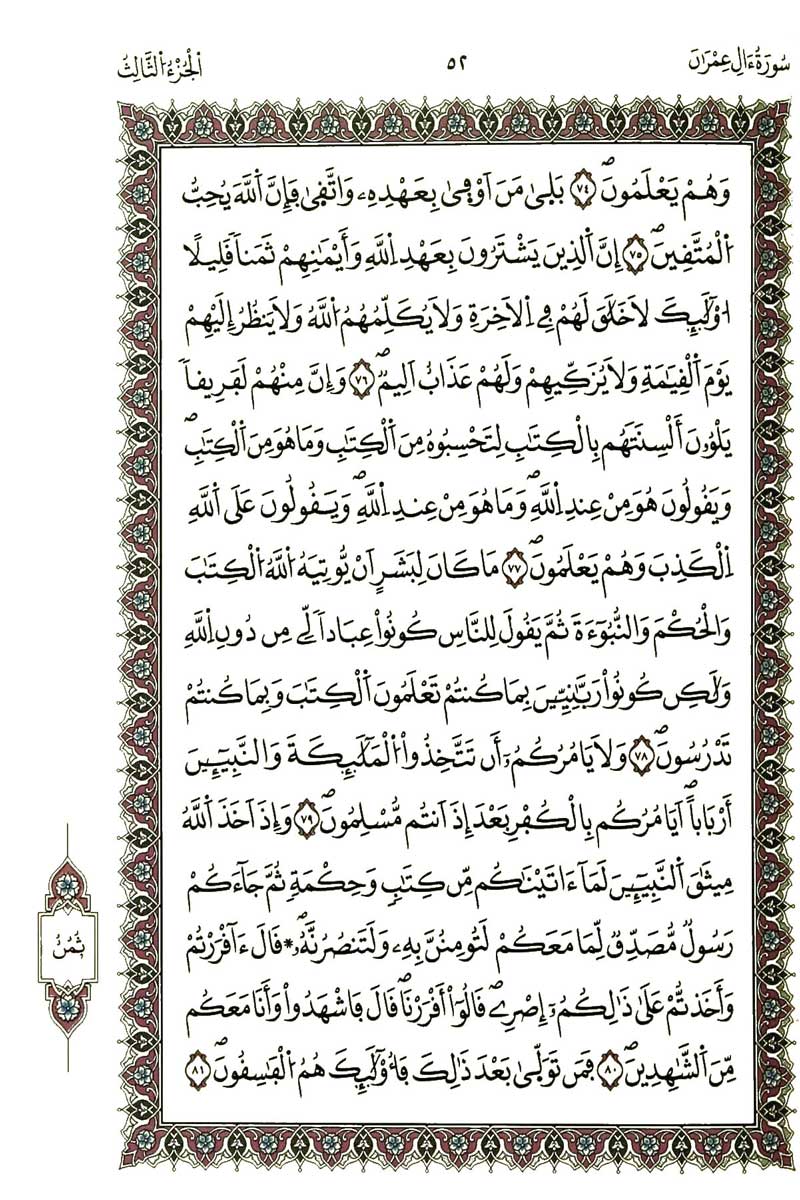 سُورَةُ ءَالِ عِمْرَٰنَ
٥٢
اَلْجُزْءُ اُلثَّالِثُ
وَهُمْ يَعْلَمُونَۖ ٧٤ بَلِىٰ مَنَ اَوْفِىٰ بِعَهْدِهِۦ وَاتَّقِىٰ فَإِنَّ اَللَّهَ يُحِبُّ
اُلْمُتَّقِينَۖ ٧٥ إِنَّ اَلذِينَ يَشْتَرُونَ بِعَهْدِ اِللَّهِ وَأَيْمَٰنِهِمْ ثَمَناٗ قَلِيلًا
اُوْلَٰٓئِكَ لَا خَلَٰقَ لَهُمْ فِے اِلَاخِرَةِ وَلَا يُكَلِّمُهُمُ اُللَّهُ وَلَا يَنظُرُ إِلَيْهِمْ
يَوْمَ اَلْقِيَٰمَةِ وَلَا يُزَكِّيهِمْ وَلَهُمْ عَذَابٌ اَلِيمٞۖ ٧٦ وَإِنَّ مِنْهُمْ لَفَرِيقاٗ
يَلْوُۥنَ أَلْسِنَتَهُم بِالْكِتَٰبِ لِتَحْسِبُوهُ مِنَ اَلْكِتَٰبِ وَمَا هُوَ مِنَ اَلْكِتَٰبِۖ
وَيَقُولُونَ هُوَ مِنْ عِندِ اِللَّهِۖ وَمَا هُوَ مِنْ عِندِ اِللَّهِۖ وَيَقُولُونَ عَلَى اَللَّهِ
اِلْكَذِبَ وَهُمْ يَعْلَمُونَۖ ٧٧ مَا كَانَ لِبَشَرٍ اَنْ يُّوتِيَهُ اُللَّهُ اُلْكِتَٰبَ
وَالْحُكْمَ وَالنُّبُوٓءَةَ ثُمَّ يَقُولَ لِلنَّاسِ كُونُواْ عِبَاداٗ لِّے مِن دُونِ اِللَّهِ
وَلَٰكِن كُونُواْ رَبَّٰنِيِّـۧنَ بِمَا كُنتُمْ تَعْلَمُونَ اَلْكِتَٰبَ وَبِمَا كُنتُمْ
تَدْرُسُونَۖ ٧٨ وَلَا يَامُرُكُمُۥٓ أَن تَتَّخِذُواْ اُلْمَلَٰٓئِكَةَ وَالنَّبِيٓـِٕۧنَ
أَرْبَاباًۖ اَيَامُرُكُم بِالْكُفْرِ بَعْدَ إِذَ اَنتُم مُّسْلِمُونَۖ ٧٩ وَإِذَ اَخَذَ اَللَّهُ
مِيثَٰقَ اَلنَّبِيٓـِٕۧنَ لَمَآ ءَاتَيْنَٰكُم مِّن كِتَٰبٖ وَحِكْمَةٖ ثُمَّ جَآءَكُمْ
رَسُولٞ مُّصَدِّقٞ لِّمَا مَعَكُمْ لَتُومِنُنَّ بِهِۦ وَلَتَنصُرُنَّهُۥۖ * قَالَ ءَآقْرَرْتُمْ
وَأَخَذتُّمْ عَلَىٰ ذَٰلِكُمُۥٓ إِصْرِےۖ قَالُوٓاْ أَقْرَرْنَاۖ قَالَ فَاشْهَدُواْ وَأَنَا مَعَكُم
مِّنَ اَلشَّٰهِدِينَۖ ٨٠ فَمَن تَوَلّ۪ىٰ بَعْدَ ذَٰلِكَ فَأُوْلَٰٓئِكَ هُمُ اُلْفَٰسِقُونَۖ ٨١
ثُمُنُ